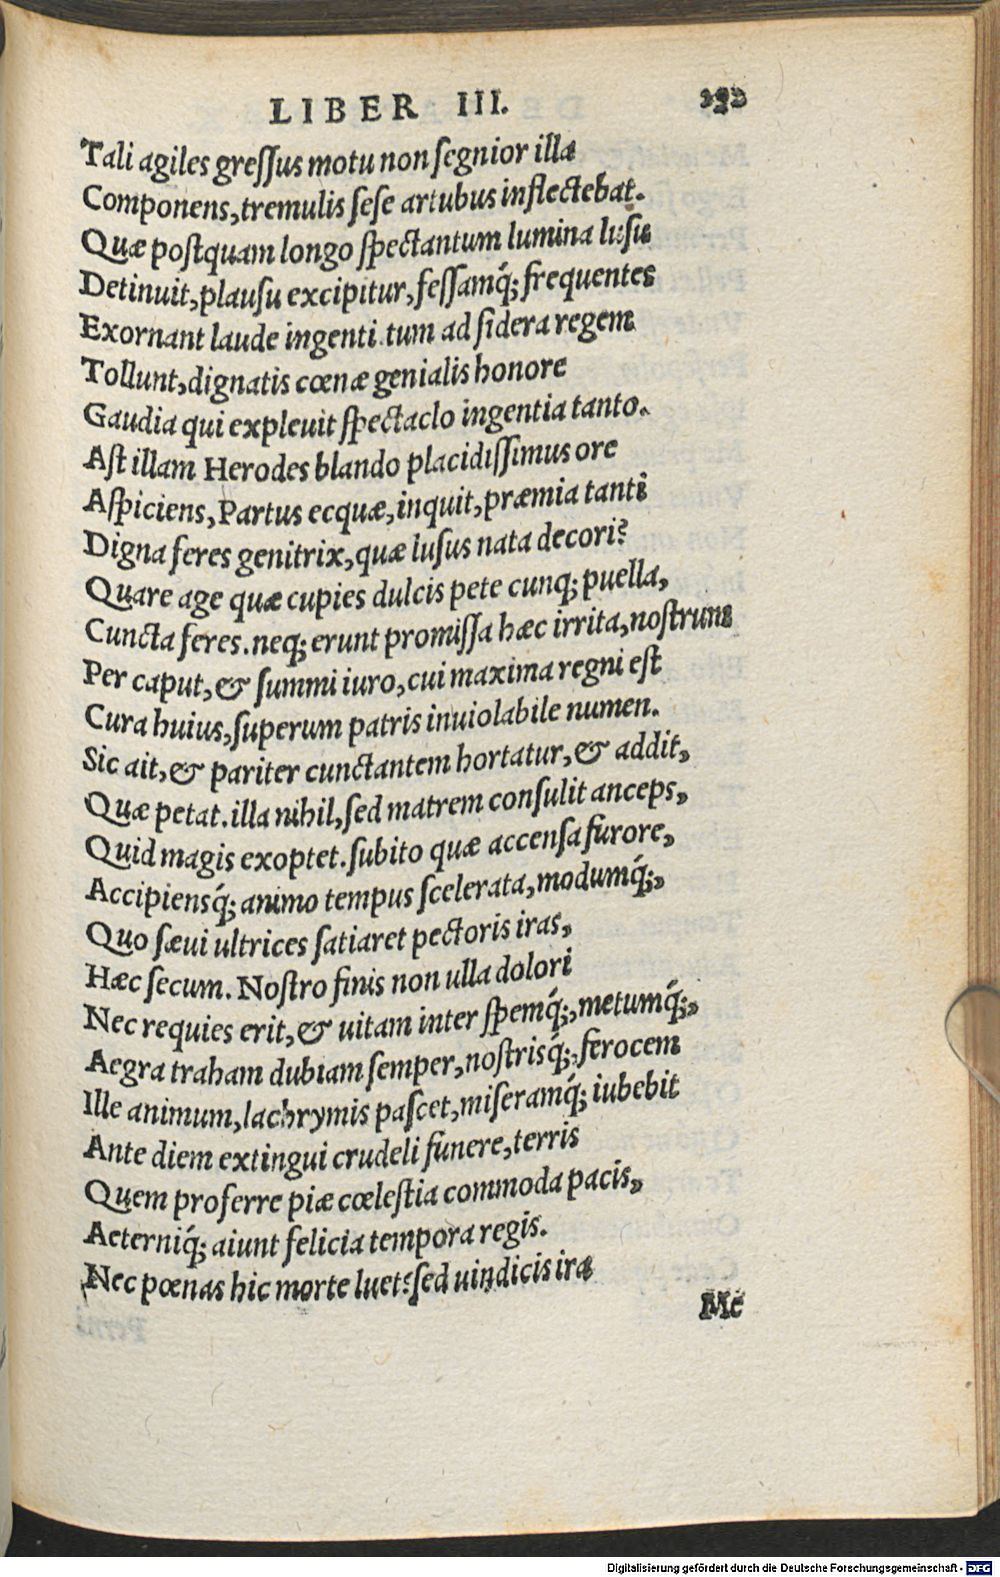 LIBER III. 292
Tali agiles greſſus motu non ſegnior illa
Componens, tremulis ſeſe artubus inflectebat.
Quæ poſtquam longo ſpectantum lumina luſu
Detinuit, plauſu excipitur, feſſamq́; frequentes
Exornant laude ingenti. tum ad ſidera regem
Tollunt, dignatis cœnæ genialis honore
Gaudia qui expleuit ſpectaclo ingentia tanto.
Aſt illam Herodes blando placidiſſimus ore
Aſpiciens, Partus ecquæ, inquit, præmia tanti
Digna feres genitrix, quæ luſus nata decori?
Quare age quæ cupies dulcis pete cunq; puella,
Cuncta feres. neq; erunt promiſſa hæc irrita, noſtrum
Per caput, & ſummi iuro, cui maxima regni eſt
Cura huius, ſuperum patris inuiolabile numen.
Sic ait, & pariter cunctantem hortatur, & addit,
Quæ petat. illa nihil, ſed matrem conſulit anceps,
Quid magis exoptet. ſubito quæ accenſa furore,
Accipiensq́; animo tempus ſcelerata, modumq́;,
Quo ſæui ultrices ſatiaret pectoris iras,
Hæc ſecum. Noſtro finis non ulla dolori
Nec requies erit, & uitam inter ſpemq́;, metumq́;,
Aegra traham dubiam ſemper, noſtrisq́;, ferocem
Ille animum, lachrymis paſcet, miſeramq́; iubebit
Ante diem extingui crudeli funere, terris
Quem proferre piæ cœleſtia commoda pacis,
Aeterniq́; aiunt felicia tempora regis.
Nec pœnas hic morte luet? ſed uindicis iræ
Me
Digitalisierung gefördert durch die Deutsche Forschungsgemeinschaft - DFG